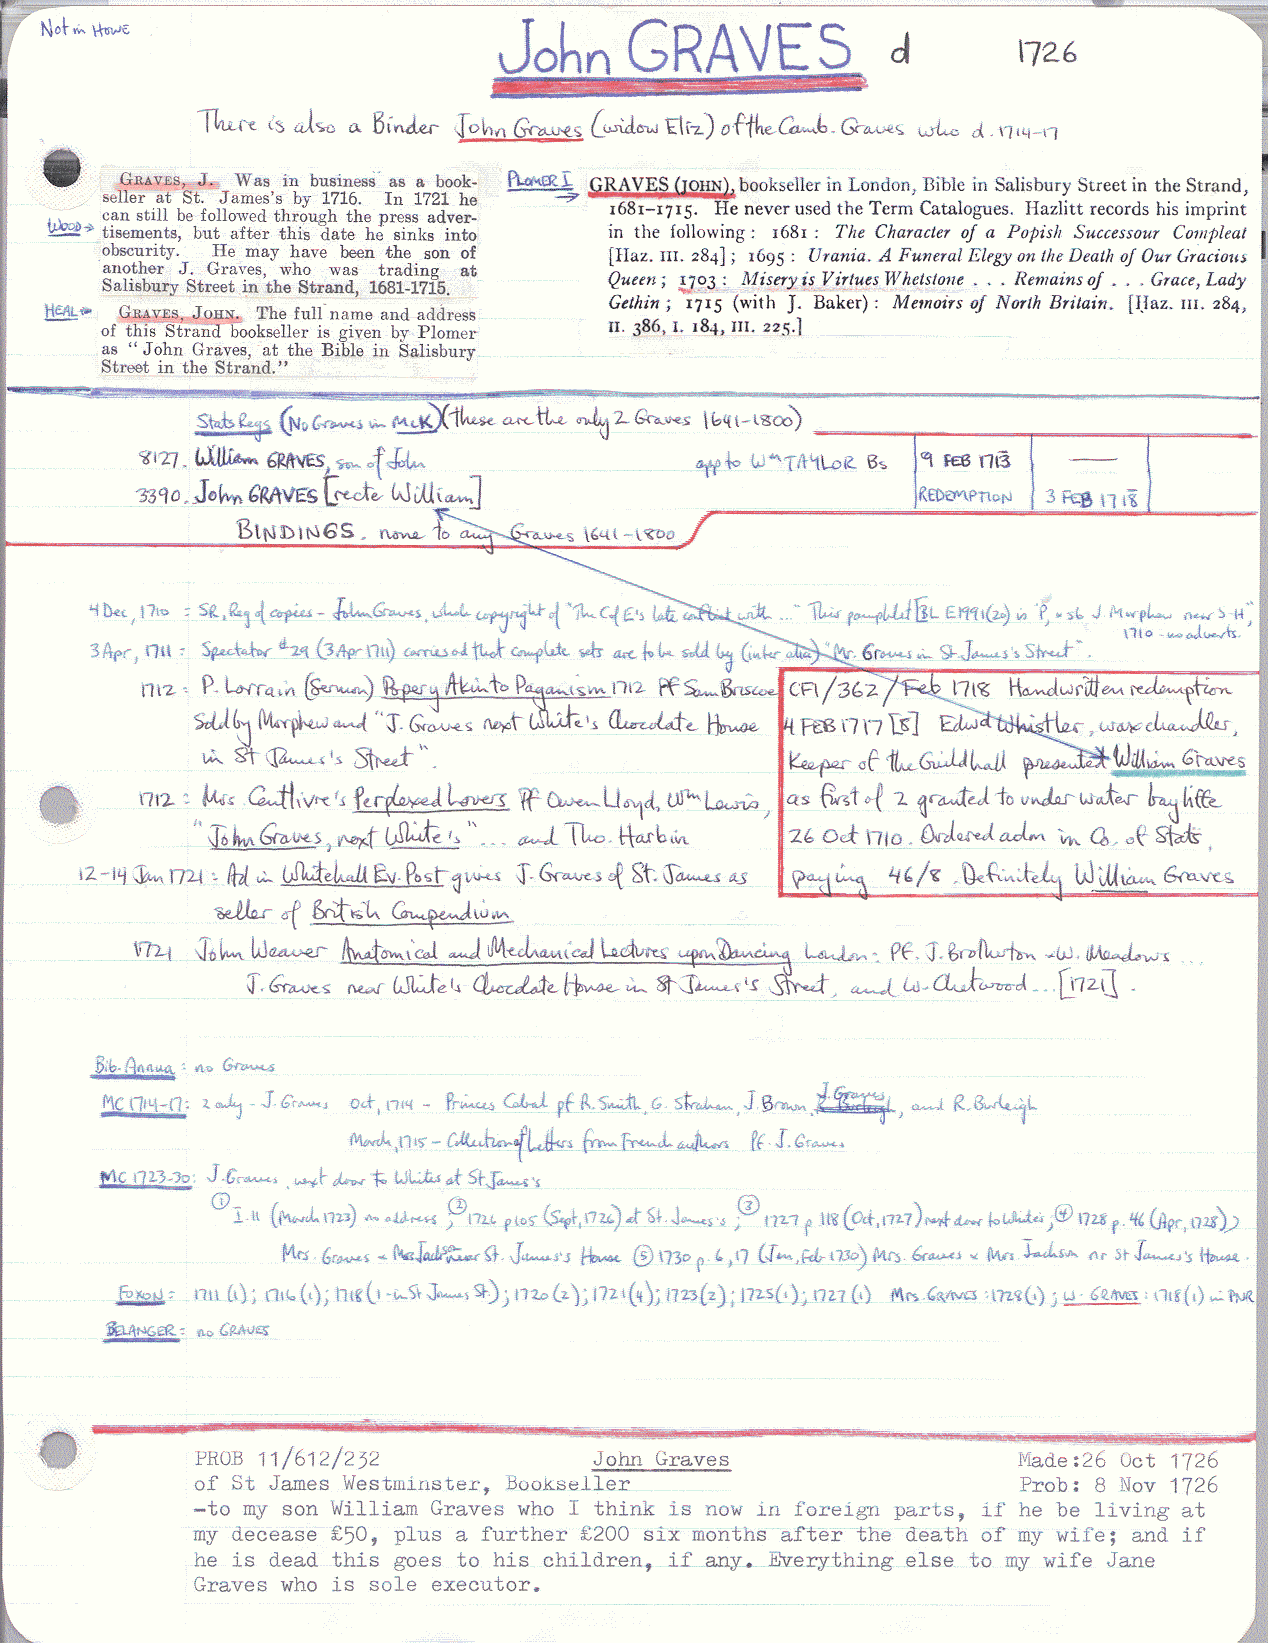 Not in Howe
John GRAVES d 1726
There is also a Binder John Graves (widow Eliz) of the Camb. Graves who d. 1714-17
WOOD →
GRAVES, J. Was in business as a book-
seller at St. James's by 1716. In 1721 he
can still be followed through the press adver-
tisements, but after this date he sinks into
obscurity. He may have been the son of
another J. Graves, who was trading at
Salisbury Street in the Strand, 1681-1715.
HEAL →
GRAVES, JOHN. The full name and address
of this Strand bookseller is given by Plomer
as "John Graves, at the Bible in Salisbury
Street in the Strand."
PLOMER I →
GRAVES (JOHN), bookseller in London, Bible in Salisbury Street in the Strand,
1681–1715. He never used the Term Catalogues. Hazlitt records his imprint
in the following : 1681 : The Character of a Popish Successour Compleat
[Haz. III. 284] ; 1695 : Urania. A Funeral Elegy on the Death of Our Gracious
Queen ; 1703 : Misery is Virtues Whetstone . . . Remains of . . . Grace, Lady
Gethin ; 1715 (with J. Baker) : Memoirs of North Britain. [Haz. III. 284,
II. 386, I. 184, III. 225.]
Stats Regs (No Graves in McK) (these are the only 2 Graves 1641-1800)
8127. William GRAVES, son of John app to Wm TAYLOR Bs 9 FEB 1713 —
3390. John GRAVES [recte William] REDEMPTION 3 FEB 1718
BINDINGS. none to any Graves 1641-1800
4 Dec, 1710 = SR, Reg of copies - John Graves, whole copyright of "The C of E's late conflict with ..." This pamphlet [BL E1991(20) is "P, & sb J. Morphew near S-H",
1710 - no adverts.
3 Apr, 1711 = Spectator #29 (3 Apr 1711) carries ad that complete sets are to be sold by (inter alia) "Mr. Graves in St. James's Street".
1712 = P. Lorrain (Sermon) Popery Akin to Paganism 1712 Pf Sam Briscoe
Sold by Morphew and "J. Graves next White's Chocolate House
in St James's Street".
1712 = Mrs. Centlivre's Perplexed Lovers Pf Owen Lloyd, Wm Lewis,
"John Graves, next White's" ... and Tho. Harbin
12-14 Jan 1721 = Ad in Whitehall Ev. Post gives J. Graves of St. James as
seller of British Compendium
CF1/362/Feb 1718 Handwritten redemption
4 FEB 1717[8] Edwd Whistler, waxchandler,
Keeper of the Guildhall presented William Graves
as first of 2 granted to under water bayliffe
26 Oct 1710. Ordered adm in Co. of Stats,
paying 46/8. Definitely William Graves
1721 John Weaver Anatomical and Mechanical Lectures upon Dancing London: Pf. J. Brotherton & W. Meadows ...
J. Graves near White's Chocolate House in St James's Street, and W. Chetwood ... [1721].
Bib. Annua: no Graves
MC 1714-17: 2 only - J. Graves Oct, 1714 - Princes Cabal pf R. Smith, G. Strahan, J. Brown, J. Graves, and R. Burleigh
March, 1715 - Collection of Letters from French authors Pf. J. Graves
MC 1723-30: J. Graves, next door to Whites at St James's
① I.11 (March 1723) no address; ② 1726 p 105 (Sept, 1726) at St. James's; ③ 1727 p 118 (Oct, 1727) next door to White's; ④ 1728 p. 46 (Apr, 1728))
Mrs. Graves & Mrs Jackson near St. James's House ⑤ 1730 p. 6, 17 (Jan, Feb 1730) Mrs. Graves & Mrs. Jackson nr St James's House.
FOXON = 1711 (1); 1716 (1); 1718 (1 - in St James St); 1720 (2); 1721 (4); 1723 (2); 1725 (1); 1727 (1) Mrs. GRAVES: 1728 (1); W. GRAVES: 1718 (1) in PNR
BELANGER = no GRAVES
PROB 11/612/232 John Graves Made:26 Oct 1726
of St James Westminster, Bookseller Prob: 8 Nov 1726
-to my son William Graves who I think is now in foreign parts, if he be living at
my decease £50, plus a further £200 six months after the death of my wife; and if
he is dead this goes to his children, if any. Everything else to my wife Jane
Graves who is sole executor.